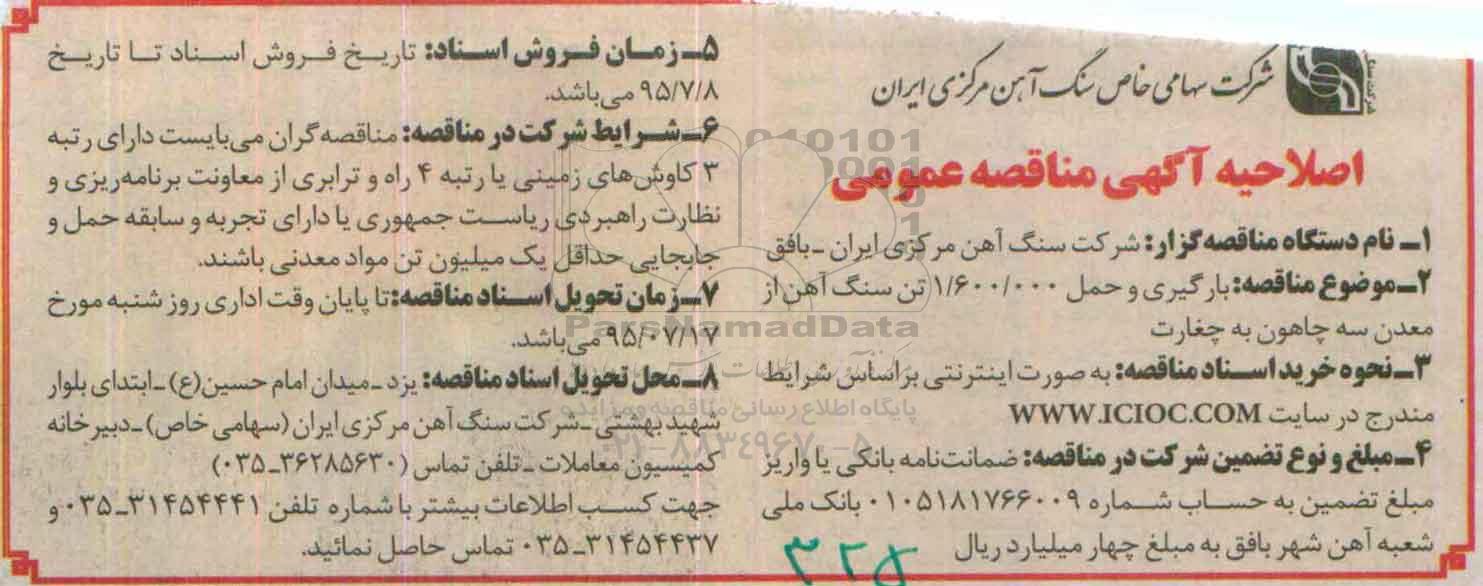 شرکت سهامی خاص سنگ آهن مرکزی ایران
اصلاحیه آگهی مناقصه عمومی
۱ـ نام دستگاه مناقصه‌گزار: شرکت سنگ آهن مرکزی ایران ـ بافق
۲ـ موضوع مناقصه: بارگیری و حمل ۱/۶۰۰/۰۰۰ تن سنگ آهن از
معدن سه چاهون به چغارت
۳ـ نحوه خرید اسـناد مناقصه: به صورت اینترنتی براساس شرایط
مندرج در سایت WWW.ICIOC.COM
۴ـ مبلغ و نوع تضمین شرکت در مناقصه: ضمانت‌نامه بانکی یا واریز
مبلغ تضمین به حساب شـماره ۰۱۰۵۱۸۱۷۶۶۰۰۹ بانک ملی
شعبه آهن شهر بافق به مبلغ چهار میلیارد ریال
۵ـ زمـان فـروش اسـناد: تاریـخ فـروش اسـناد تـا تاریـخ
۹۵/۷/۸ می‌باشد.
۶ـ شـرایط شرکت در مناقصه: مناقصه‌گران می‌بایست دارای رتبه
۳ کاوش‌های زمینی یا رتبه ۴ راه و ترابری از معاونت برنامه‌ریزی و
نظارت راهبردی ریاسـت جمهوری یا دارای تجربه و سابقه حمل و
جابجایی حداقل یک میلیون تن مواد معدنی باشند.
۷ـ زمان تحویل اسـناد مناقصه: تا پایان وقت اداری روز شنبه مورخ
۹۵/۰۷/۱۷ می‌باشد.
۸ـ محل تحویل اسناد مناقصه: یزد ـ میدان امام حسین(ع) ـ ابتدای بلوار
شهید بهشتی ـ شرکت سنگ آهن مرکزی ایران (سهامی خاص) ـ دبیرخانه
کمیسیون معاملات ـ تلفن تماس (۳۶۲۸۵۶۳۰ـ۰۳۵)
جهت کسـب اطلاعات بیشتر با شماره تلفن ۳۱۴۵۴۴۴۱ـ۰۳۵ و
۳۱۴۵۴۴۳۷ـ۰۳۵ تماس حاصل نمائید.
ParsNamadData
پایگاه اطلاع رسانی مناقصه و مزایده
۰۲۱-۸۸۳۴۹۶۷۰-۵
۳۲۵